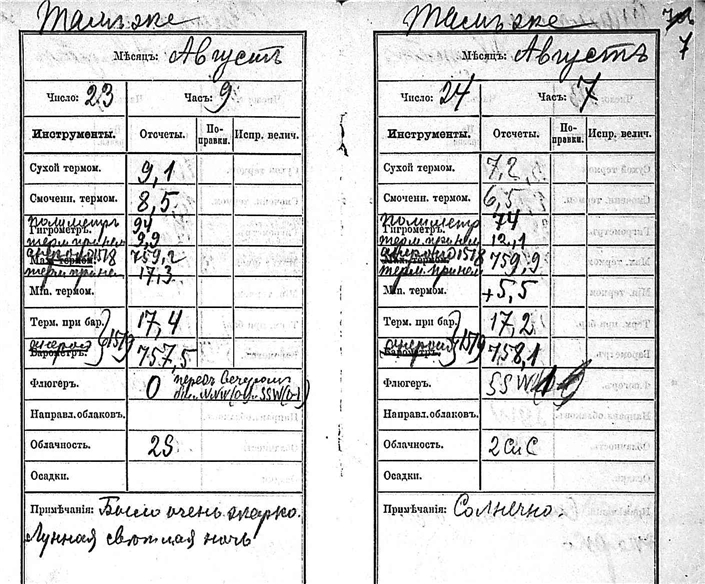 Тамъ же
Мѣсяцъ: Августъ
Число: 23 Часъ: 9
Инструменты. Отсчеты. По-правки. Испр. велич.
Сухой термом. 9,1
Смоченн. термом. 8,5
полиметръ 94
Гигрометръ.
терм. при нем 9,9
анероид 1518 759,2
Max. термом.
терм. при нем 17,3
Min. термом.
Терм. при бар. 17,4
анероид 1519 757,5
Барометръ.
Флюгеръ. 0 передъ вечеромъ
WNW(0-1) SSW(0-1)
Направл. облаковъ.
Облачность. 2S
Осадки.
Примѣчанія: Было очень жарко.
Лунная светлая ночь
Тамъ же
7
Мѣсяцъ: Августъ
Число: 24 Часъ: 7
Инструменты. Отсчеты. По-правки. Испр. велич.
Сухой термом. 7,2
Смоченн. термом. 6,5
полиметр 74
Гигрометръ.
терм. при нем 12,1
анероид 1518 759,9
Max. термом.
терм. при нем
Min. термом. +5,5
Терм. при бар. 17,2
анероид 1519 758,1
Барометръ.
Флюгеръ. SSW
Направл. облаковъ.
Облачность. 2 C и C
Осадки.
Примѣчанія: Солнечно